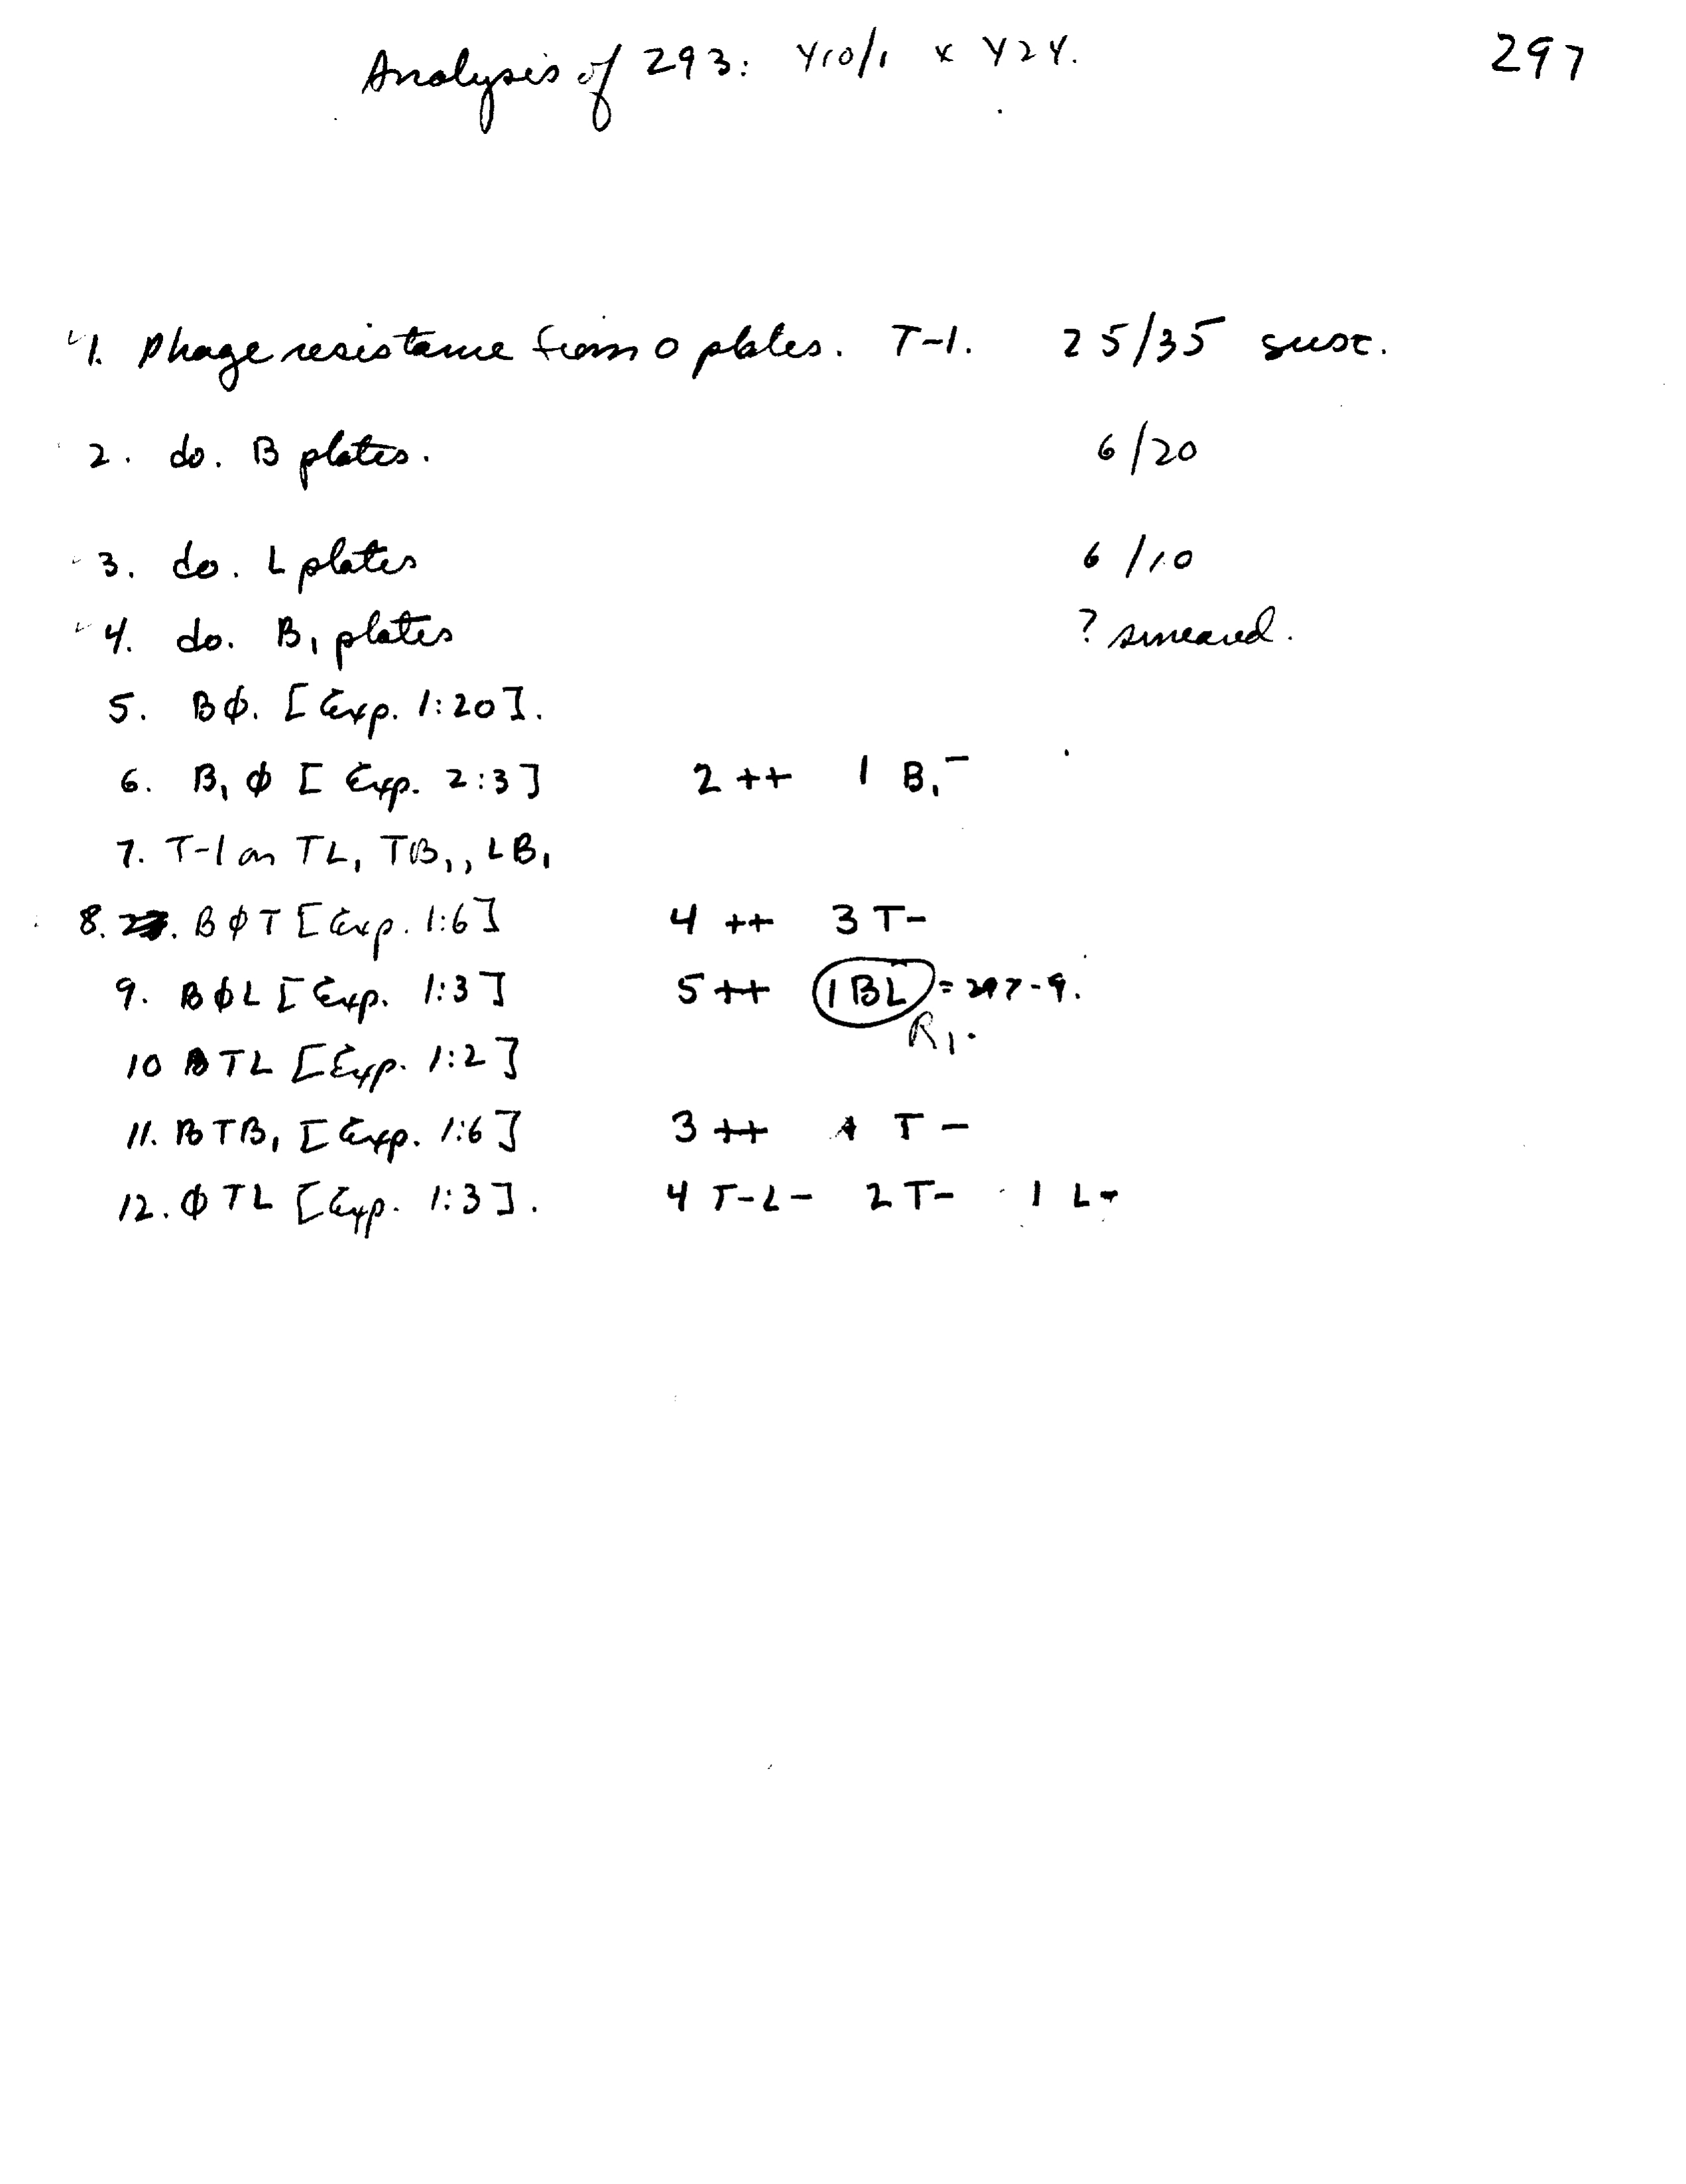 Analysis of 293: Y10/1 x Y24. 297
1. Phage resistance from o plates. T-1. 25/35 susc.
2. do. B plates. 6/20
3. do. L plates 6/10
4. do. B₁ plates ? smeared.
5. Bφ. [Exp. 1:20].
6. B₁ φ [Exp. 2:3] 2 ++ 1 B₁⁻
7. T-1 on TL, TB₁, LB₁
8. BφT [Exp. 1:6] 4 ++ 3 T-
9. BφL [Exp. 1:3] 5 ++ 1 BL = 297-9.
R₁.
10 BTL [Exp. 1:2]
11. BTB₁ [Exp. 1:6] 3 ++ T -
12. φTL [Exp. 1:3]. 4 T-L- 2 T- 1 L-